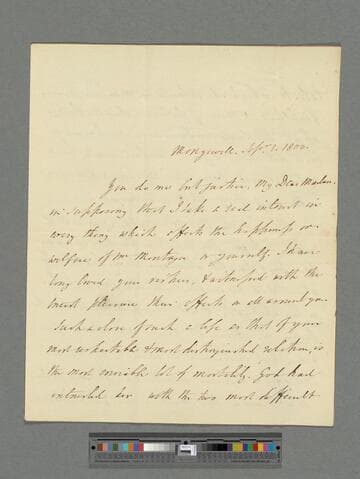 Mongewell. Apr. 1. 1800.
You do me but justice, My Dear Madam,
in supposing that I take a real interest in
every thing which affects the happiness or
welfare of Mr Montagu or yourself. I have
long loved your virtues, & witnessed with the
truest pleasure their effects on all around you.
Such a close of such a life as that of your
most respectable & most distinguished relation, is
the most enviable lot of mortality. God had
entrusted her with the two most difficult